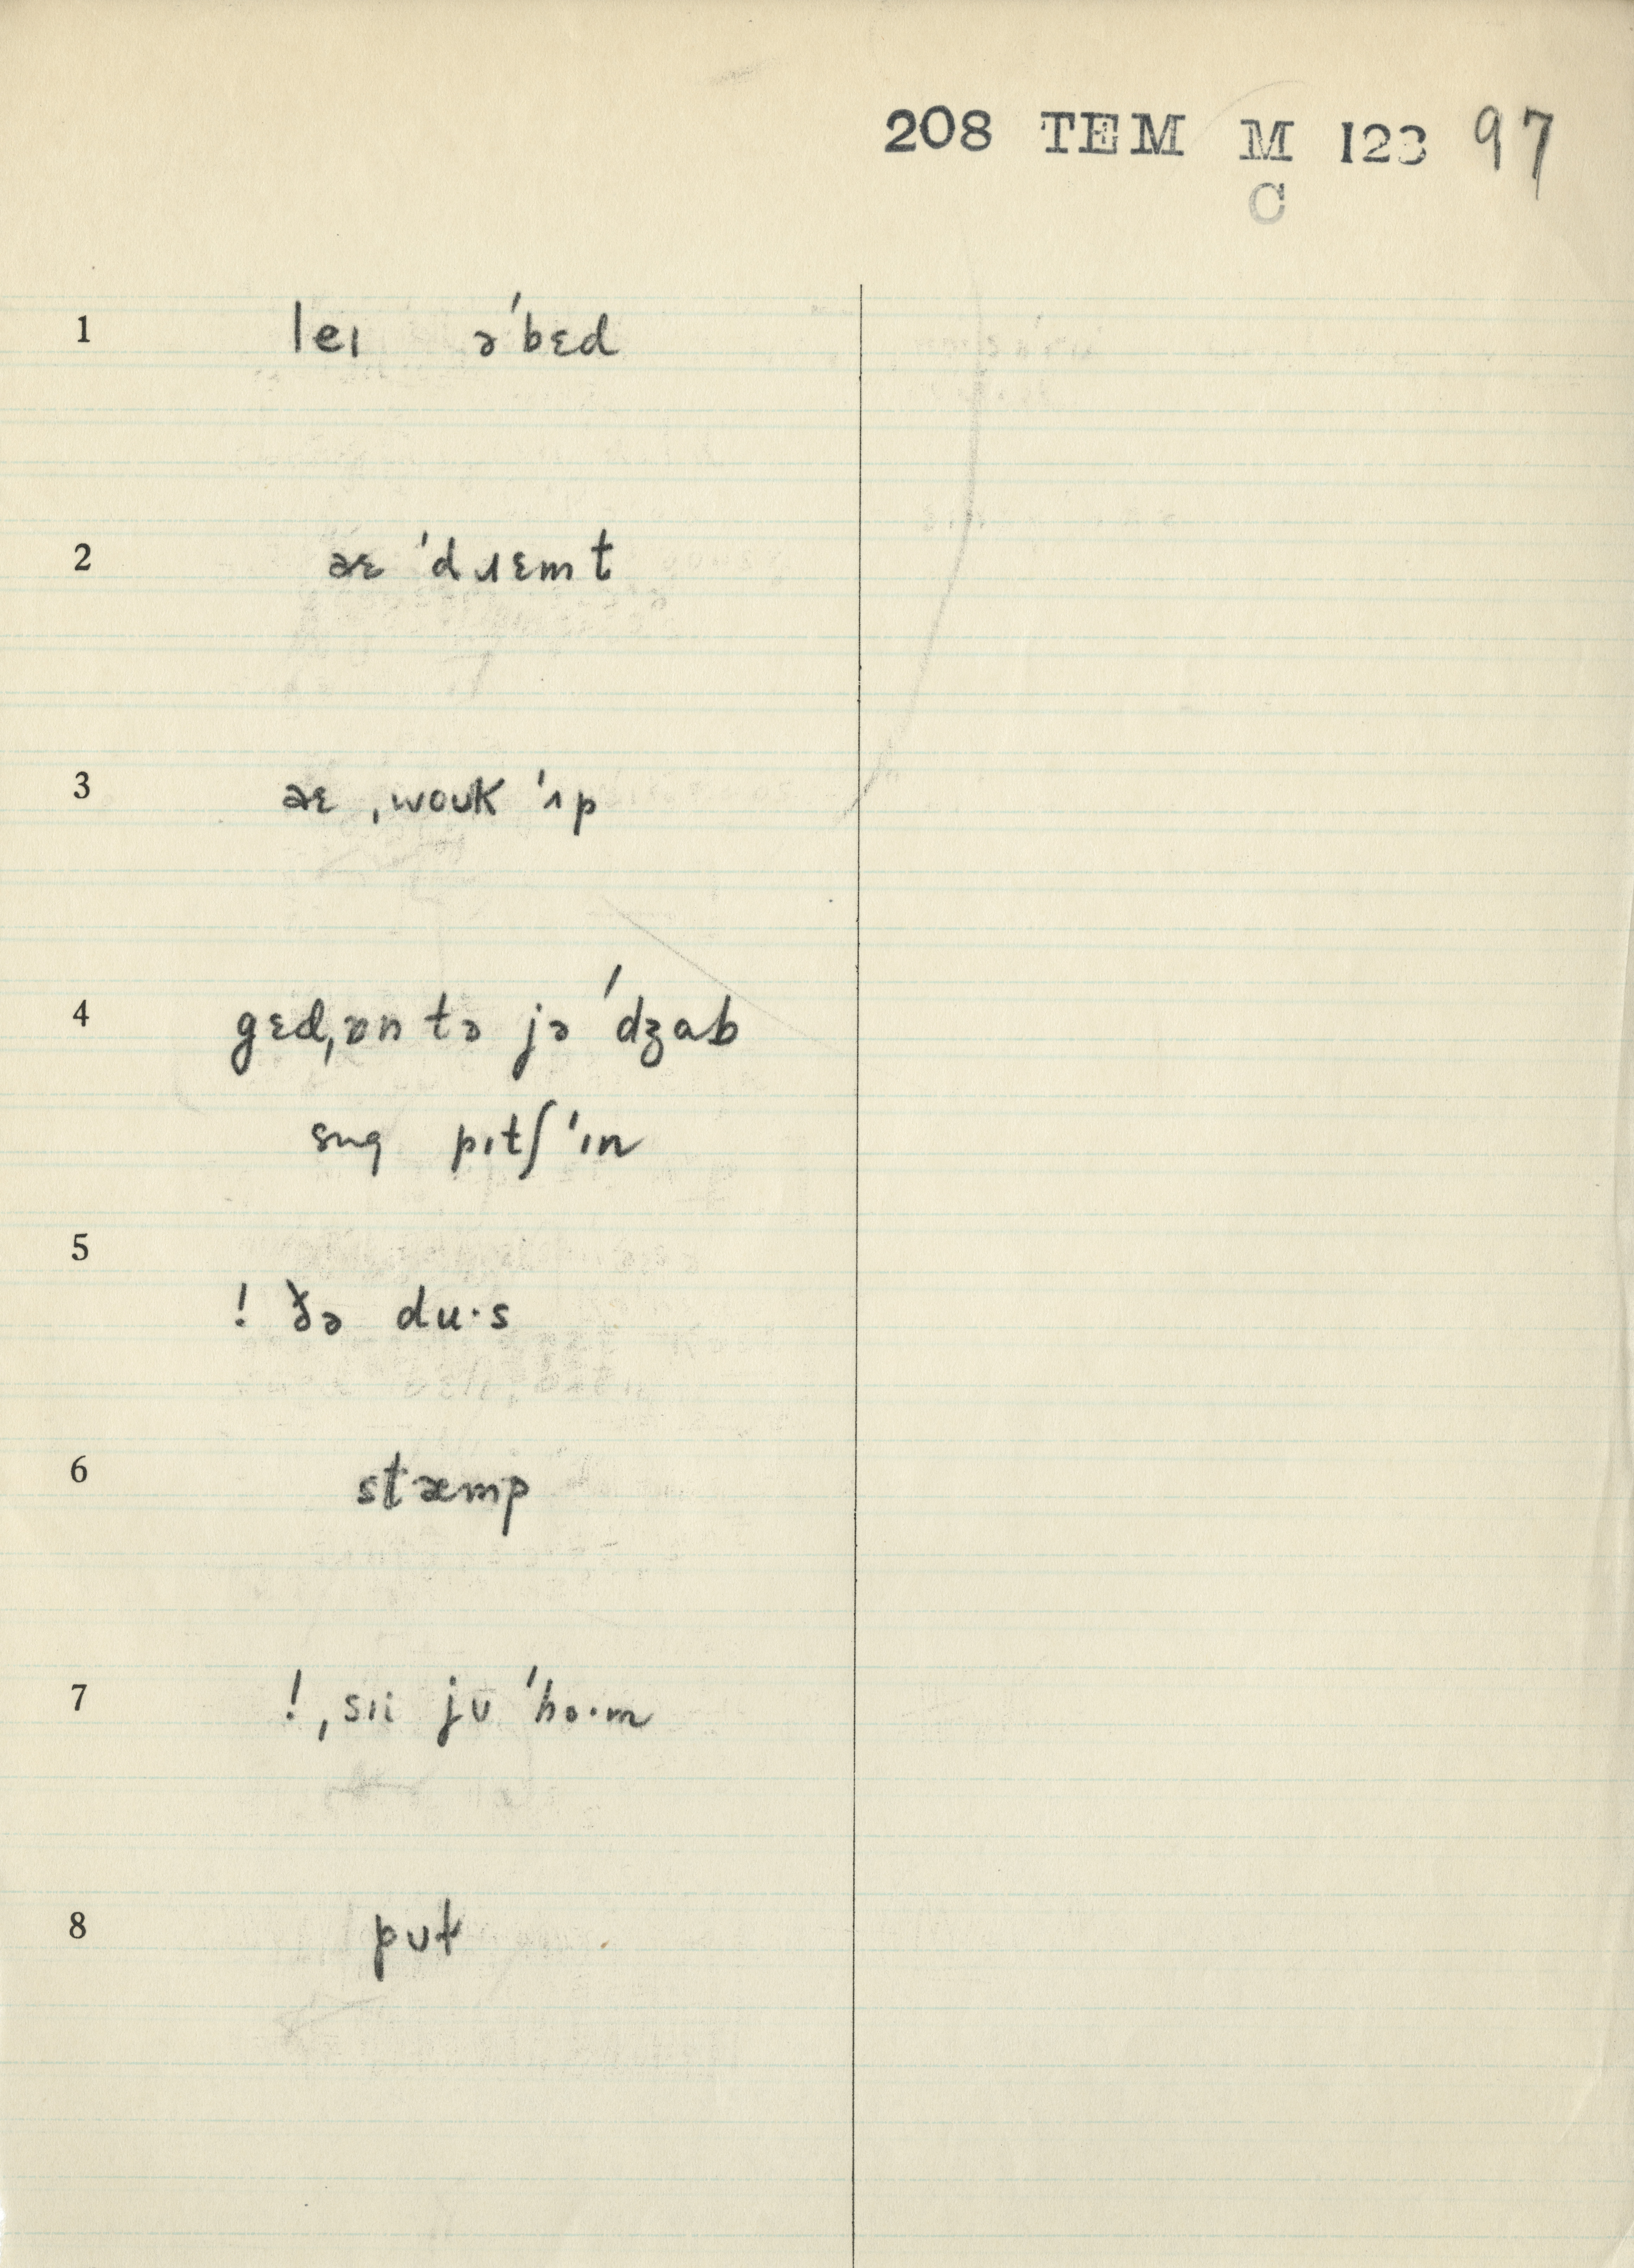 208 TEM M 123 97
C
1 leɪ əˈbɛd
2 aɛ ˈdɹɛmt
3 aɛ ˌwoʊk ˈʌp
4 gɛdˌɒn tə jə ˈdʒab
sʌŋ pɪtʃ ˈɪn
5 ! ðə du·s
6 stæmp
7 ! ˌsɪi jʊ ˈho·m
8 pʊt